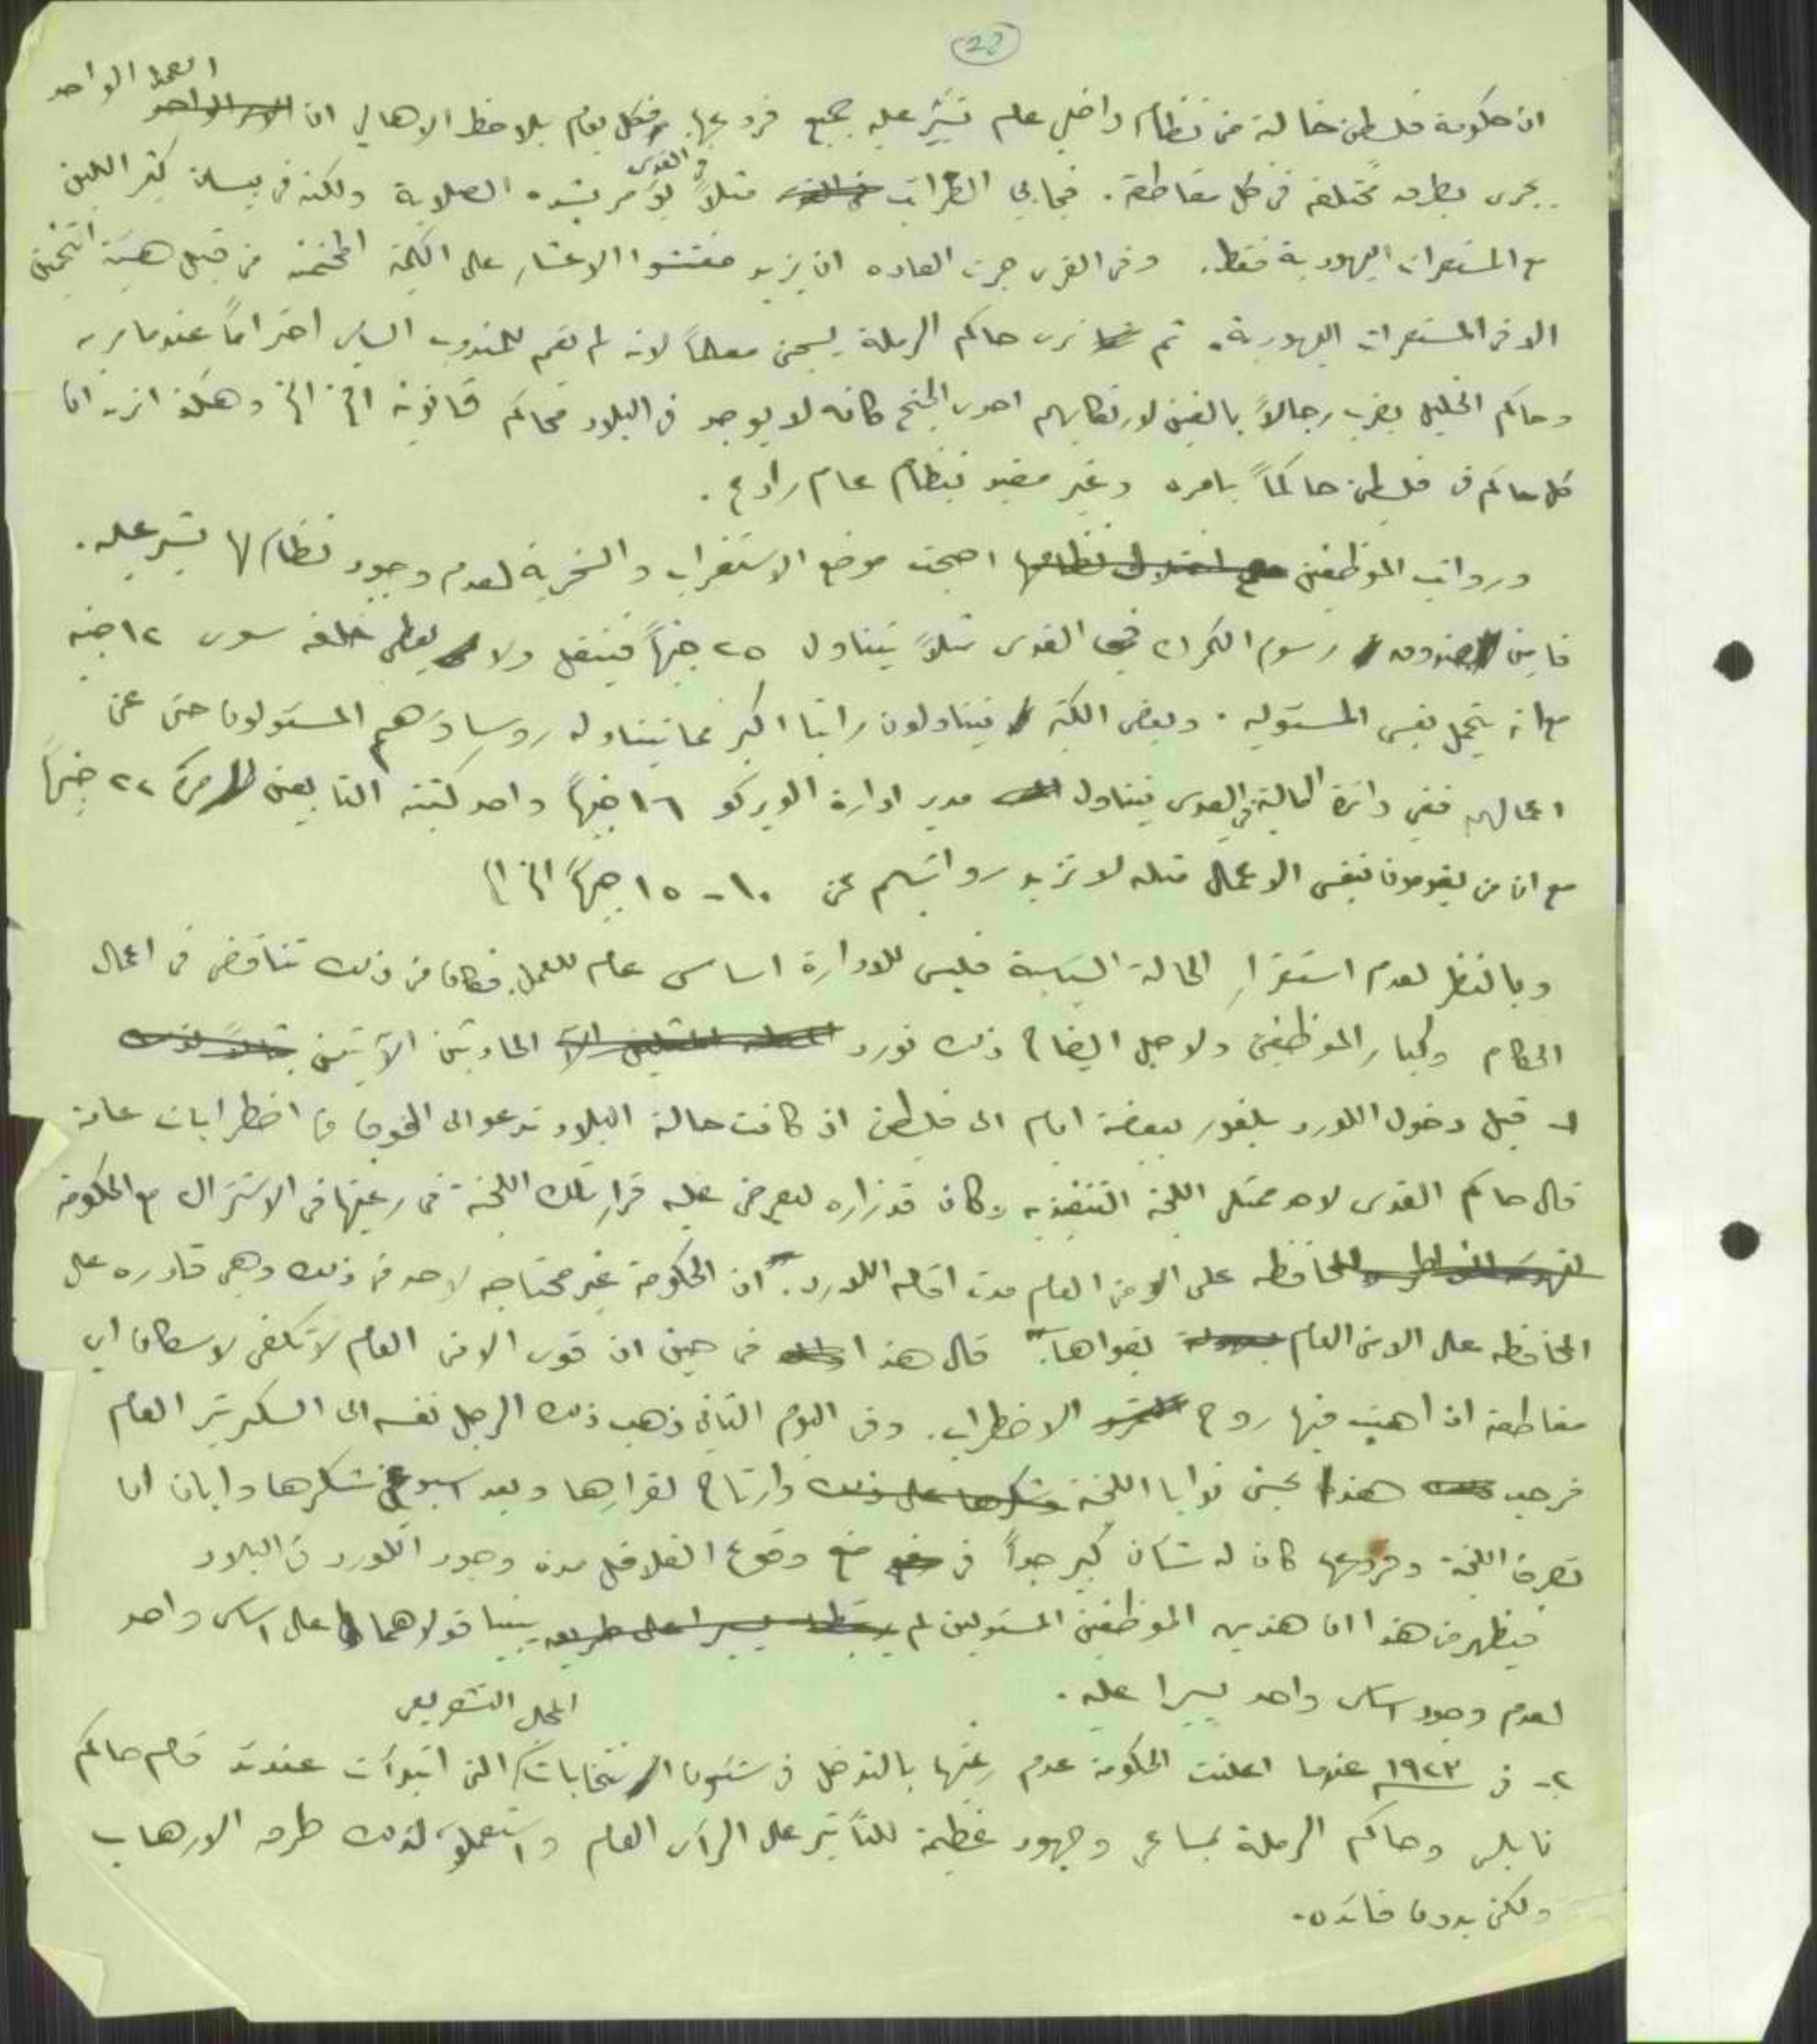 22
ان حكومة فلسطين خالية من نظام داخلي عام تسير عليه جميع فروعها. فكل يوم يلاحظ الاهالي ان العمل الواحد
يجري بطرق مختلفة في كل مقاطعة. فجابي الضرائب في القدس مثلاً يؤمر بشده الصلابة ولكنه في بيسان كثير اللين
مع المستعمرات اليهودية فقط. وفي القرى جرت العاده ان يزيد مفتشوا الاعشار على الكمية المخمنة من قبل هيئة التخمين
الا في المستعمرات اليهودية. ثم نرى حاكم الرملة يسجن معلماً لانه لم يقم للمندوب السامي احتراماً عندما مر به
وحاكم الخليل يضرب رجالاً بالغين لارتكابهم احدى الجنح كانه لا يوجد في البلاد محاكم قانونية الخ الخ وهكذا نرى ان
كل حاكم في فلسطين حاكماً بامره وغير مقيد بنظام عام رادع.
ورواتب الموظفين مع اختلال نظامها اصبحت موضع الاستغراب والسخرية لعدم وجود نظام لها تسير عليه.
فامين صندوق رسوم الكمرك في القدس مثلاً يتناول ٢٥ جنيهاً فينتقل ولا يعطى خلفه سوى ١٢ جنيه
مع انه يتحمل نفس المسئولية. وبعض الكتبة يتناولون راتبا اكبر مما يتناوله روساؤهم المسئولون حتى عن
اعمالهم ففي دائرة المالية في القدس يتناول مدير ادارة الويركو ١٦ جنيهاً واحد كتبته التابعين ٢٢ جنيهاً
مع ان من يقومون بنفس الاعمال مثله لا تزيد رواتبهم عن ١٠ - ١٥ جنيهاً الخ الخ
وبالنظر لعدم استقرار الحالة السياسية فليس للادارة اساس عام للعمل. فكان من ذلك تناقض في اعمال
الحكام وكبار الموظفين ولاجل ايضاح ذلك نورد الحادثتين الآتيتين
١- قبل دخول اللورد بلفور ببضعة ايام الى فلسطين اذ كانت حالة البلاد تدعو الى الخوف من اضطرابات عامة
قال حاكم القدس لاحد ممثلي اللجنة التنفيذيه وكان قد زاره ليعرض عليه قرار تلك اللجنة في رغبتها في الاشتراك مع الحكومة
للمحافظه على الامن العام مدت اقامة اللورد. "ان الحكومة غير محتاجه لاحد في ذلك وهي قادره على
المحافظه على الامن العام بقواها". قال هذا في حين ان قوى الامن العام لا تكفي لاسكان اي
مقاطعة اذا هبت فيها روح الاضطراب. وفي اليوم الثاني ذهب ذلك الرجل نفسه الى السكرتير العام
فرحب هذا بحسن نوايا اللجنة وشكرها على ذلك وارتاح لقرارها وبعد اسبوعين شكرها وابان ان
تصرف اللجنة وفروعها كان له شان كبير جداً في منع وقوع القلاقل مدة وجود اللورد في البلاد
فيظهر من هذا ان هذين الموظفين المسئولين لم يبنيا قولاهما على اساس واحد
لعدم وجود اساس واحد يسيرا عليه.
٢- في ١٩٢٣ عندما اعلنت الحكومة عدم رغبتها بالتدخل في شئون انتخابات المجلس التشريعي التي ابتدأت عندئذ قام حاكم
نابلس وحاكم الرملة بمساعي وجهود عظيمة للتأثير على الرأي العام واستعملوا لذلك طرق الارهاب
ولكن بدون فائده.